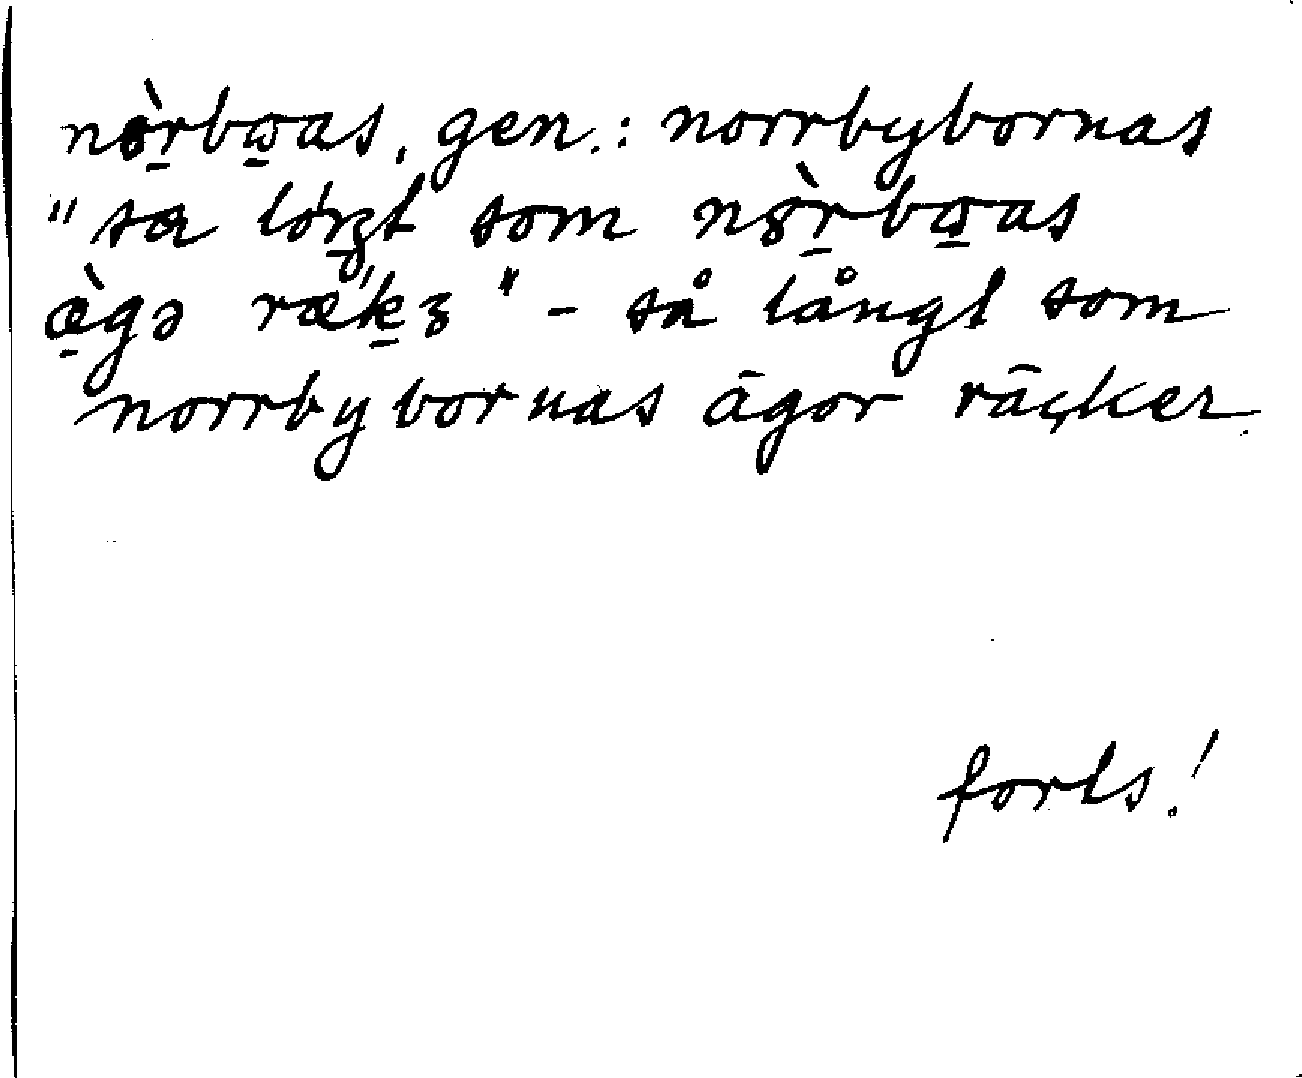 nɞ̀r̲bɷ̲as, gen.: norrbybornas
"sa lóŋt som nɞ̀r̲bɷ̲as
æ̲̀gə ræ´k̲ɜ" – så långt som
norrbybornas ägor räcker.
forts.!